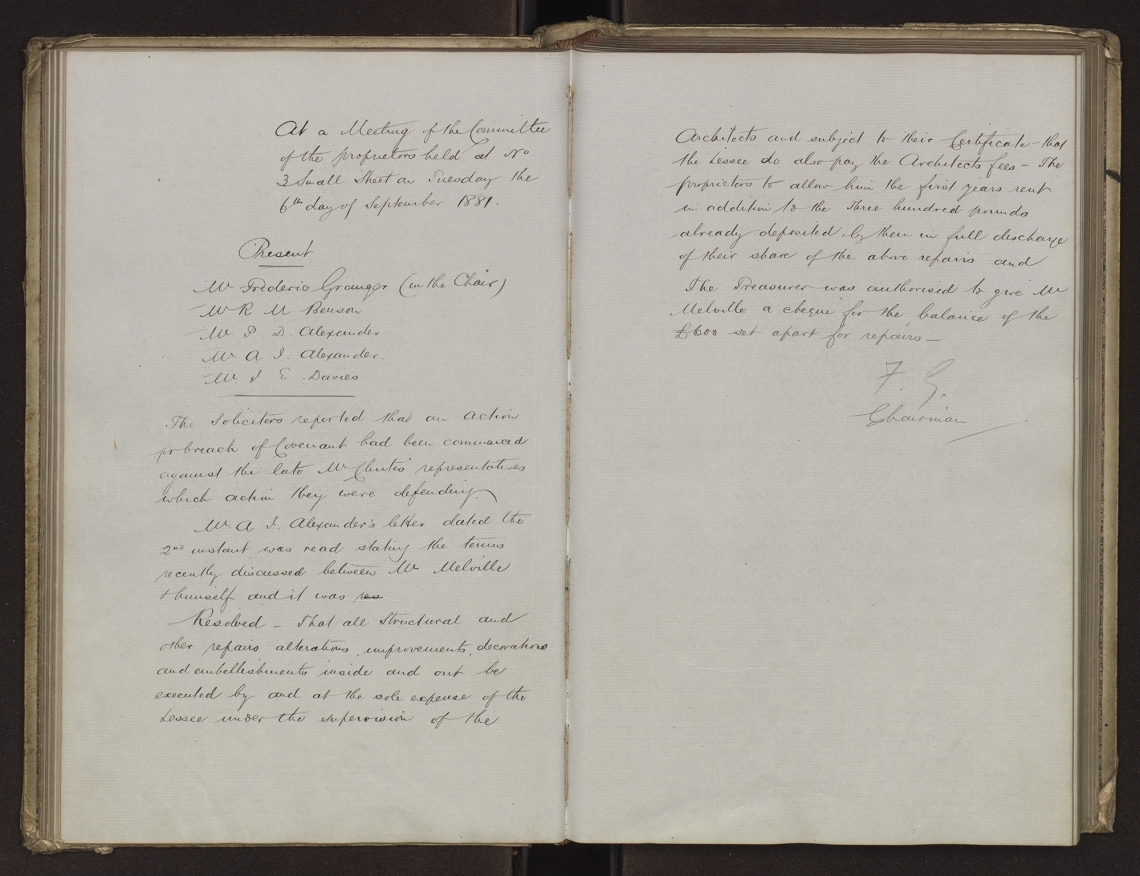 At a Meeting of the Committee
of the proprietors held at No
3 Small Street on Tuesday the
6th day of September 1881.
Present
Mr Frederic Granger (in the Chair)
Mr R M Benson
Mr P D. Alexander
Mr A J. Alexander.
Mr J E. Davies
The Solicitors reported that an action
for breach of Covenant had been commenced
against the late Mr Chute's representatives
which action they were defending
Mr. A J. Alexander's letter dated the
2nd instant was read stating the terms
recently discussed between Mr Melville
& himself and it was res
Resolved – That all Structural and
other repairs alterations, improvements, decorations
and embellishments inside and out be
executed by and at the sole expense of the
Lessee under the supervision of the
Architects and subject to their Certificate – that
the Lessee do also pay the Architects fees – The
proprietors to allow him the first years rent
in addition to the Three hundred pounds
already deposited by them in full discharge
of their share of the above repairs and
The Treasurer was authorised to give Mr
Melville a cheque for the balance of the
£600 set apart for repairs –
F. G.
Chairman